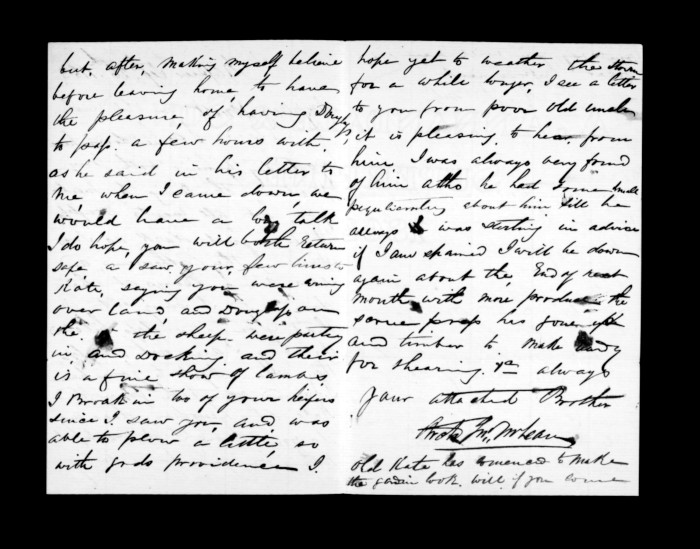 but, after, making myself believe
before leaving home, to have
the pleasure, of having Douglas
to pass. a few hours with,
as he said in his letter to
me, when I came down, we
would have a big talk
I do hope, you will both return
safe, a saw your, few lines to
Kate, saying you were going
over land, and Douglas on
the the sheep. were party
in and Docking and their
is a fine show of lambs
I Broak in to of your heifers
since I saw you, and was
able to plow a little, so
with gods providence I.
hope yet to weather the storm
for a while longer, I see a letter
to you from poor old uncle
it is pleasing to hear from
him, I was always very fond
of him altho he had some small
peguliarity about him still he
allways was in advise
if I am spaired I will be down
again about the End of next
month with more produce the
scrue his
and timber to make ready
for shearing. always
your attached Brother
McLean
old Kate has comenced to make
the look. will if you come